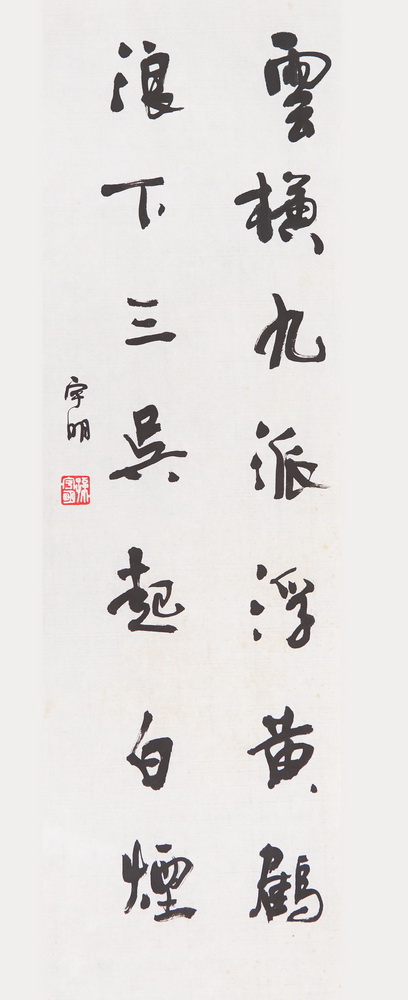 雲橫九派浮黃鶴
浪下三吳起白煙
宇明